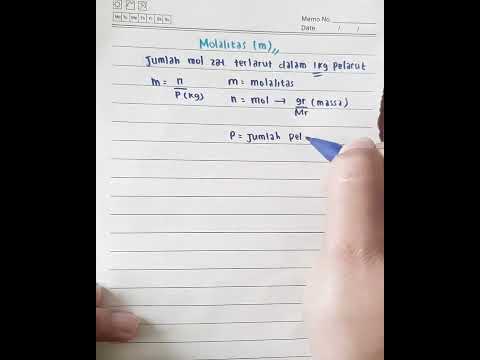 Memo No.
Mo Tu We Th Fr Sa Su
Date / /
Molalitas (m)
Jumlah mol zat terlarut dalam 1kg pelarut
m = n / P(kg)
m = molalitas
n = mol → gr (massa) / Mr
P = Jumlah pel